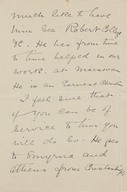 much like to have
him see Robert College
&c. He has from time
to time helped in our
work at Marsovan
He is an earnest
I feel sure that
if you can be of
service to him you
will do so. He goes
to Smyrna and
Athens from